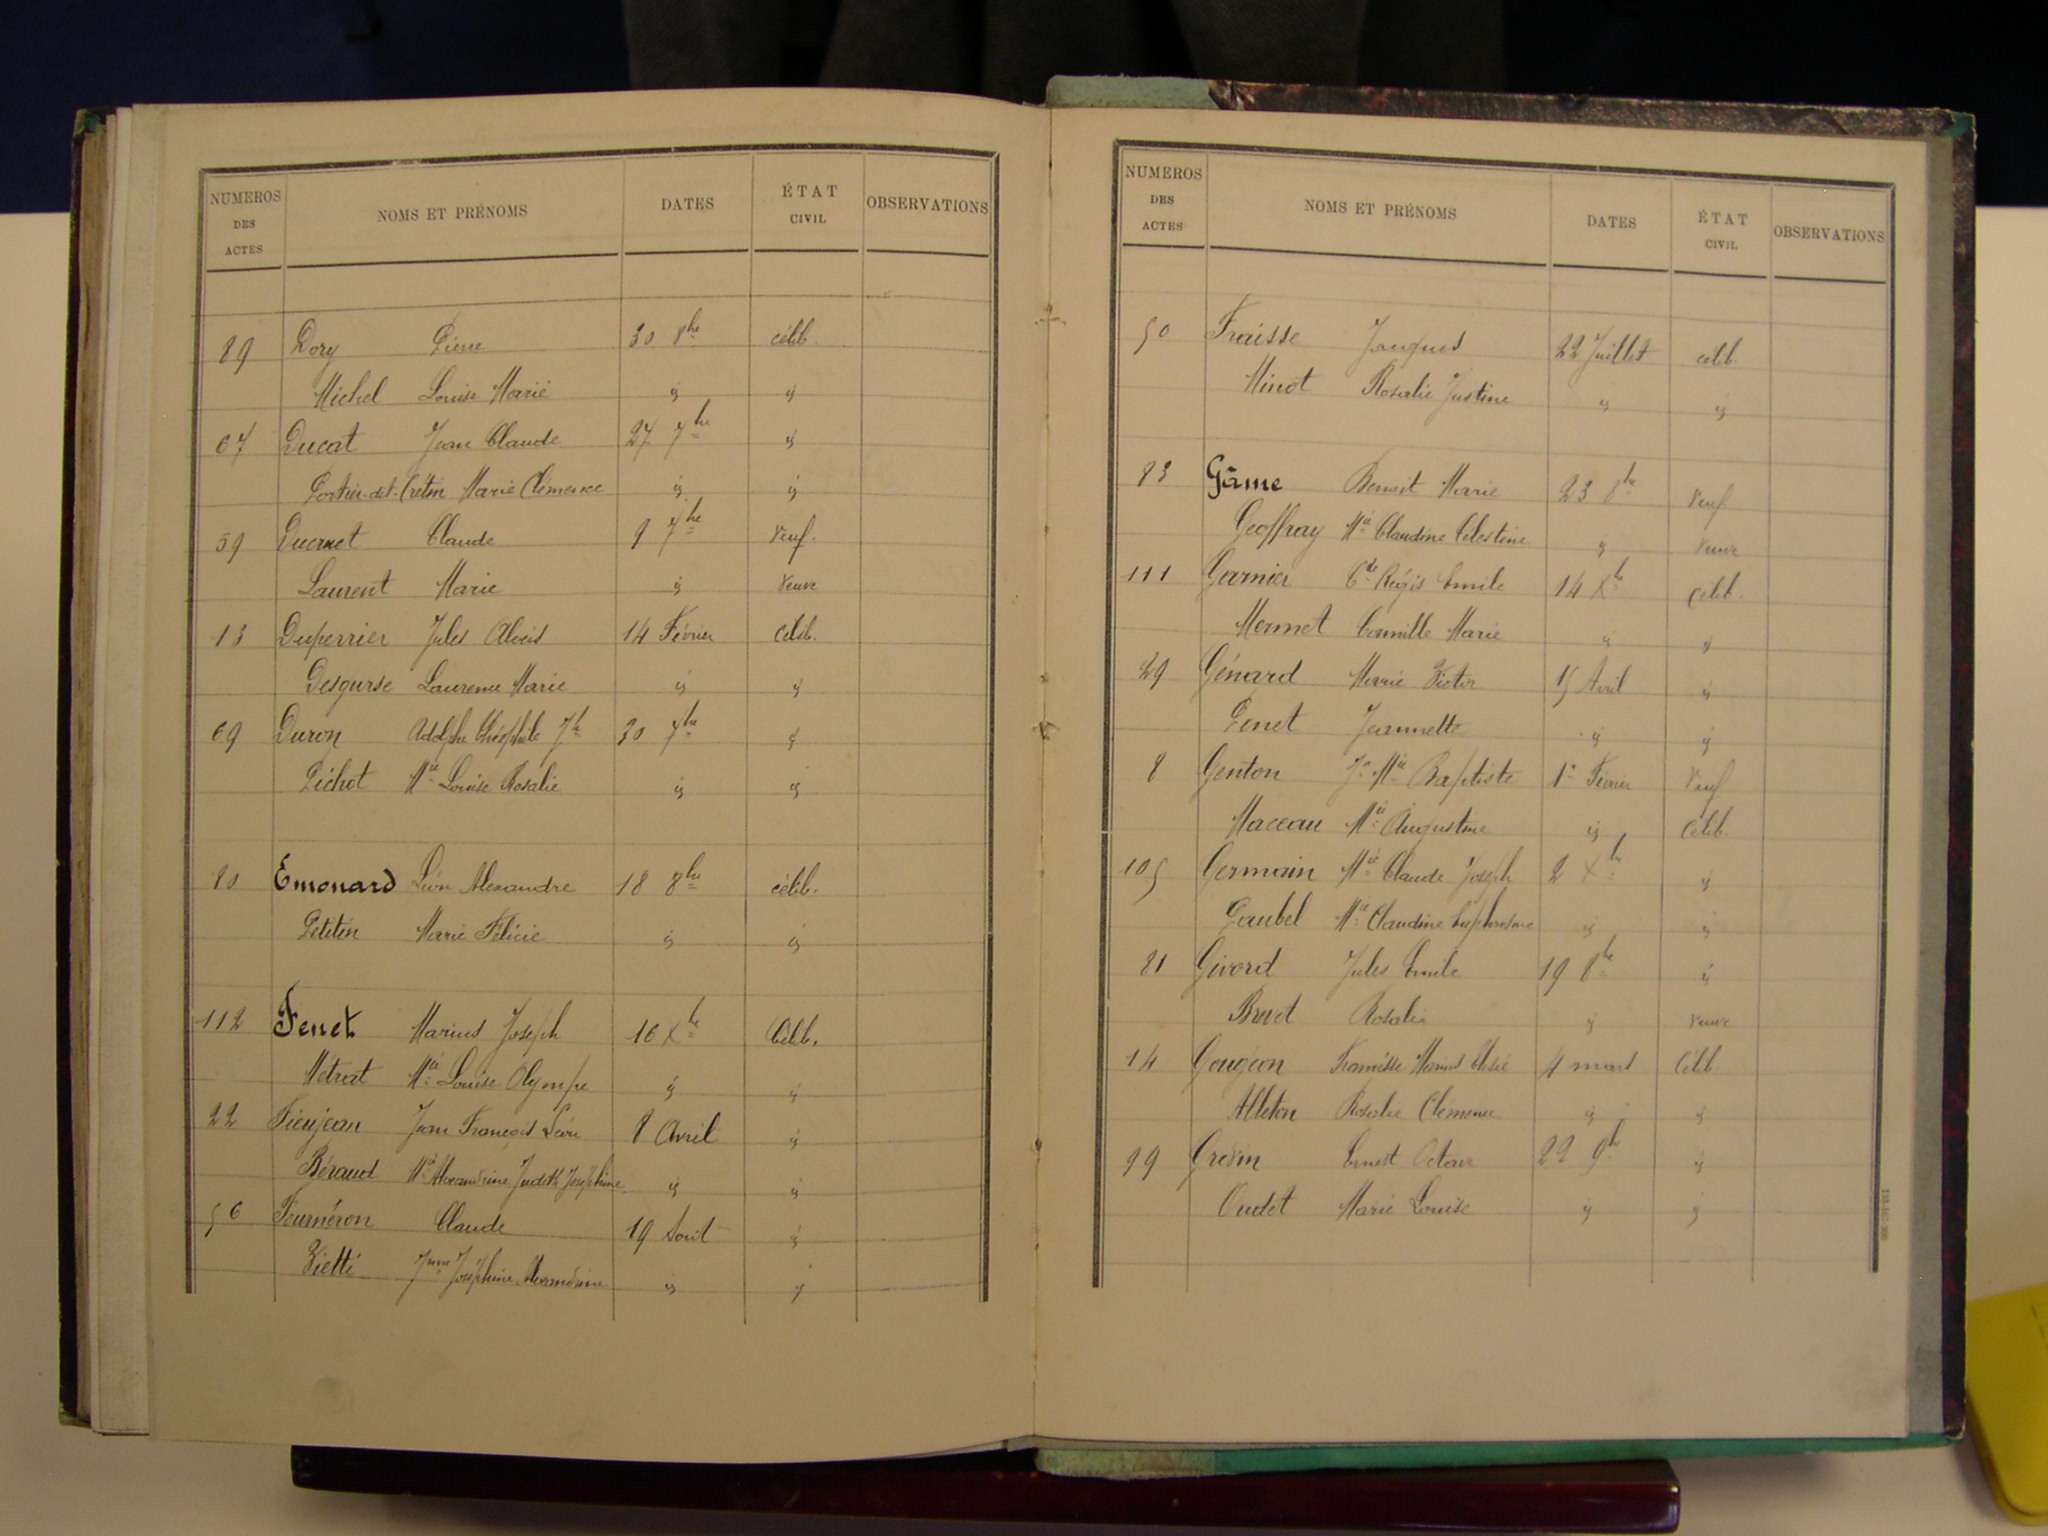 NUMEROS DES ACTES NOMS ET PRÉNOMS DATES ÉTAT CIVIL OBSERVATIONS
89 Dory Pierre 30 8bre célib.
Michel Louise Marie id id
67 Ducat Jean Claude 27 7bre id
Portier-dit-Cretin Marie Clémence id id
59 Claude 9 7bre Veuf.
Laurent Marie id Veuve
13 Duperrier Jules Aloïs 14 Février Célib.
Laurence Marie id id
69 Duron Adolphe Théophile Jh 30 7bre id
Pichot Mie Louise Rosalie id id
80 Emonard Léon Alexandre 18 8bre célib.
Petitin Marie Félicie id id
112 Fenet Marius Joseph 16 Xbre Célib.
Métrat Mie Louise Olympe id id
22 Fieujean Jean François Léon 8 Avril id
Béraud Mie Alexandrine Judith Joséphine id id
56 Fournéron Claude 19 Août id
Vietti Jnne Joséphine Alexandrine id id
NUMEROS DES ACTES NOMS ET PRÉNOMS DATES ÉTAT CIVIL OBSERVATIONS
50 Fraisse Jacques 22 Juillet célib.
Minot Rosalie Justine id id
83 Gâme Benoit Marie 23 8bre Veuf
Geoffray Mie Claudine Célestine id Veuve
111 Garnier Cde Régis Emile 14 Xbre Célib.
Mermet Camille Marie id id
29 Génard Marie Victor 15 Avril id
Penet Jeannette id id
8 Genton Jn Mie Baptiste 1er Février Veuf
Maceau Mie Augustine id Célib.
105 Germain Mie Claude Joseph 2 Xbre id
Gaubel Mie Claudine Euphrosine id id
81 Givord Jules Emile 19 8bre id
Brevet Rosalie id Veuve
14 Gougeon Marius 4 mars Célib.
Alleton Rosalie Clémence id id
99 Grévin Ernest Octave 22 9bre id
Oudet Marie Louise id id